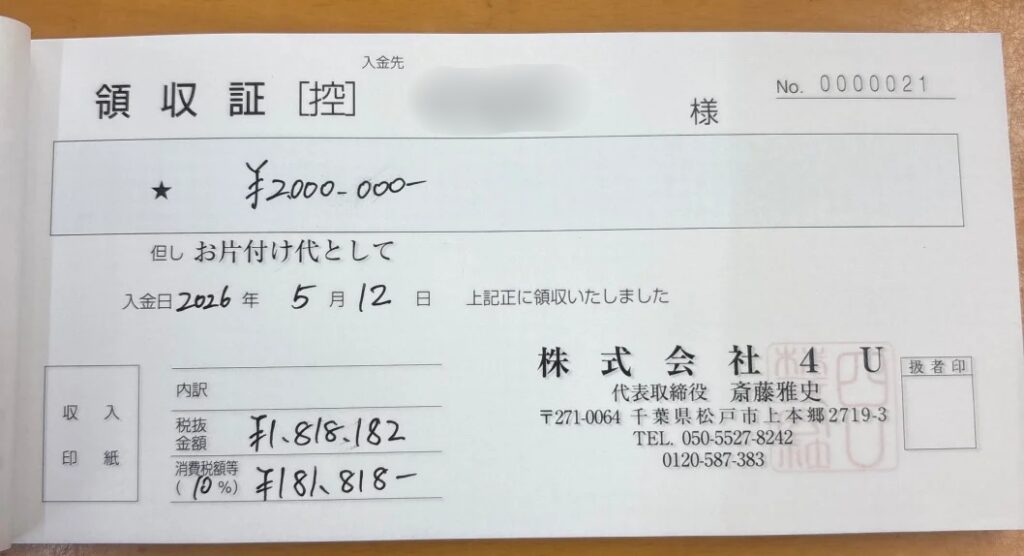 入金先
領収証［控］ 様 No. 0000021
★ ¥2000-000-
但し お片付け代として
入金日 2026 年 5 月 12 日 上記正に領収いたしました
収入
印紙
内訳
税抜
金額 ¥1,818,182
消費税額等
( 10 %) ¥181,818-
株式会社 4U
代表取締役 斎藤雅史
〒271-0064 千葉県松戸市上本郷2719-3
TEL. 050-5527-8242
0120-587-383
扱者印